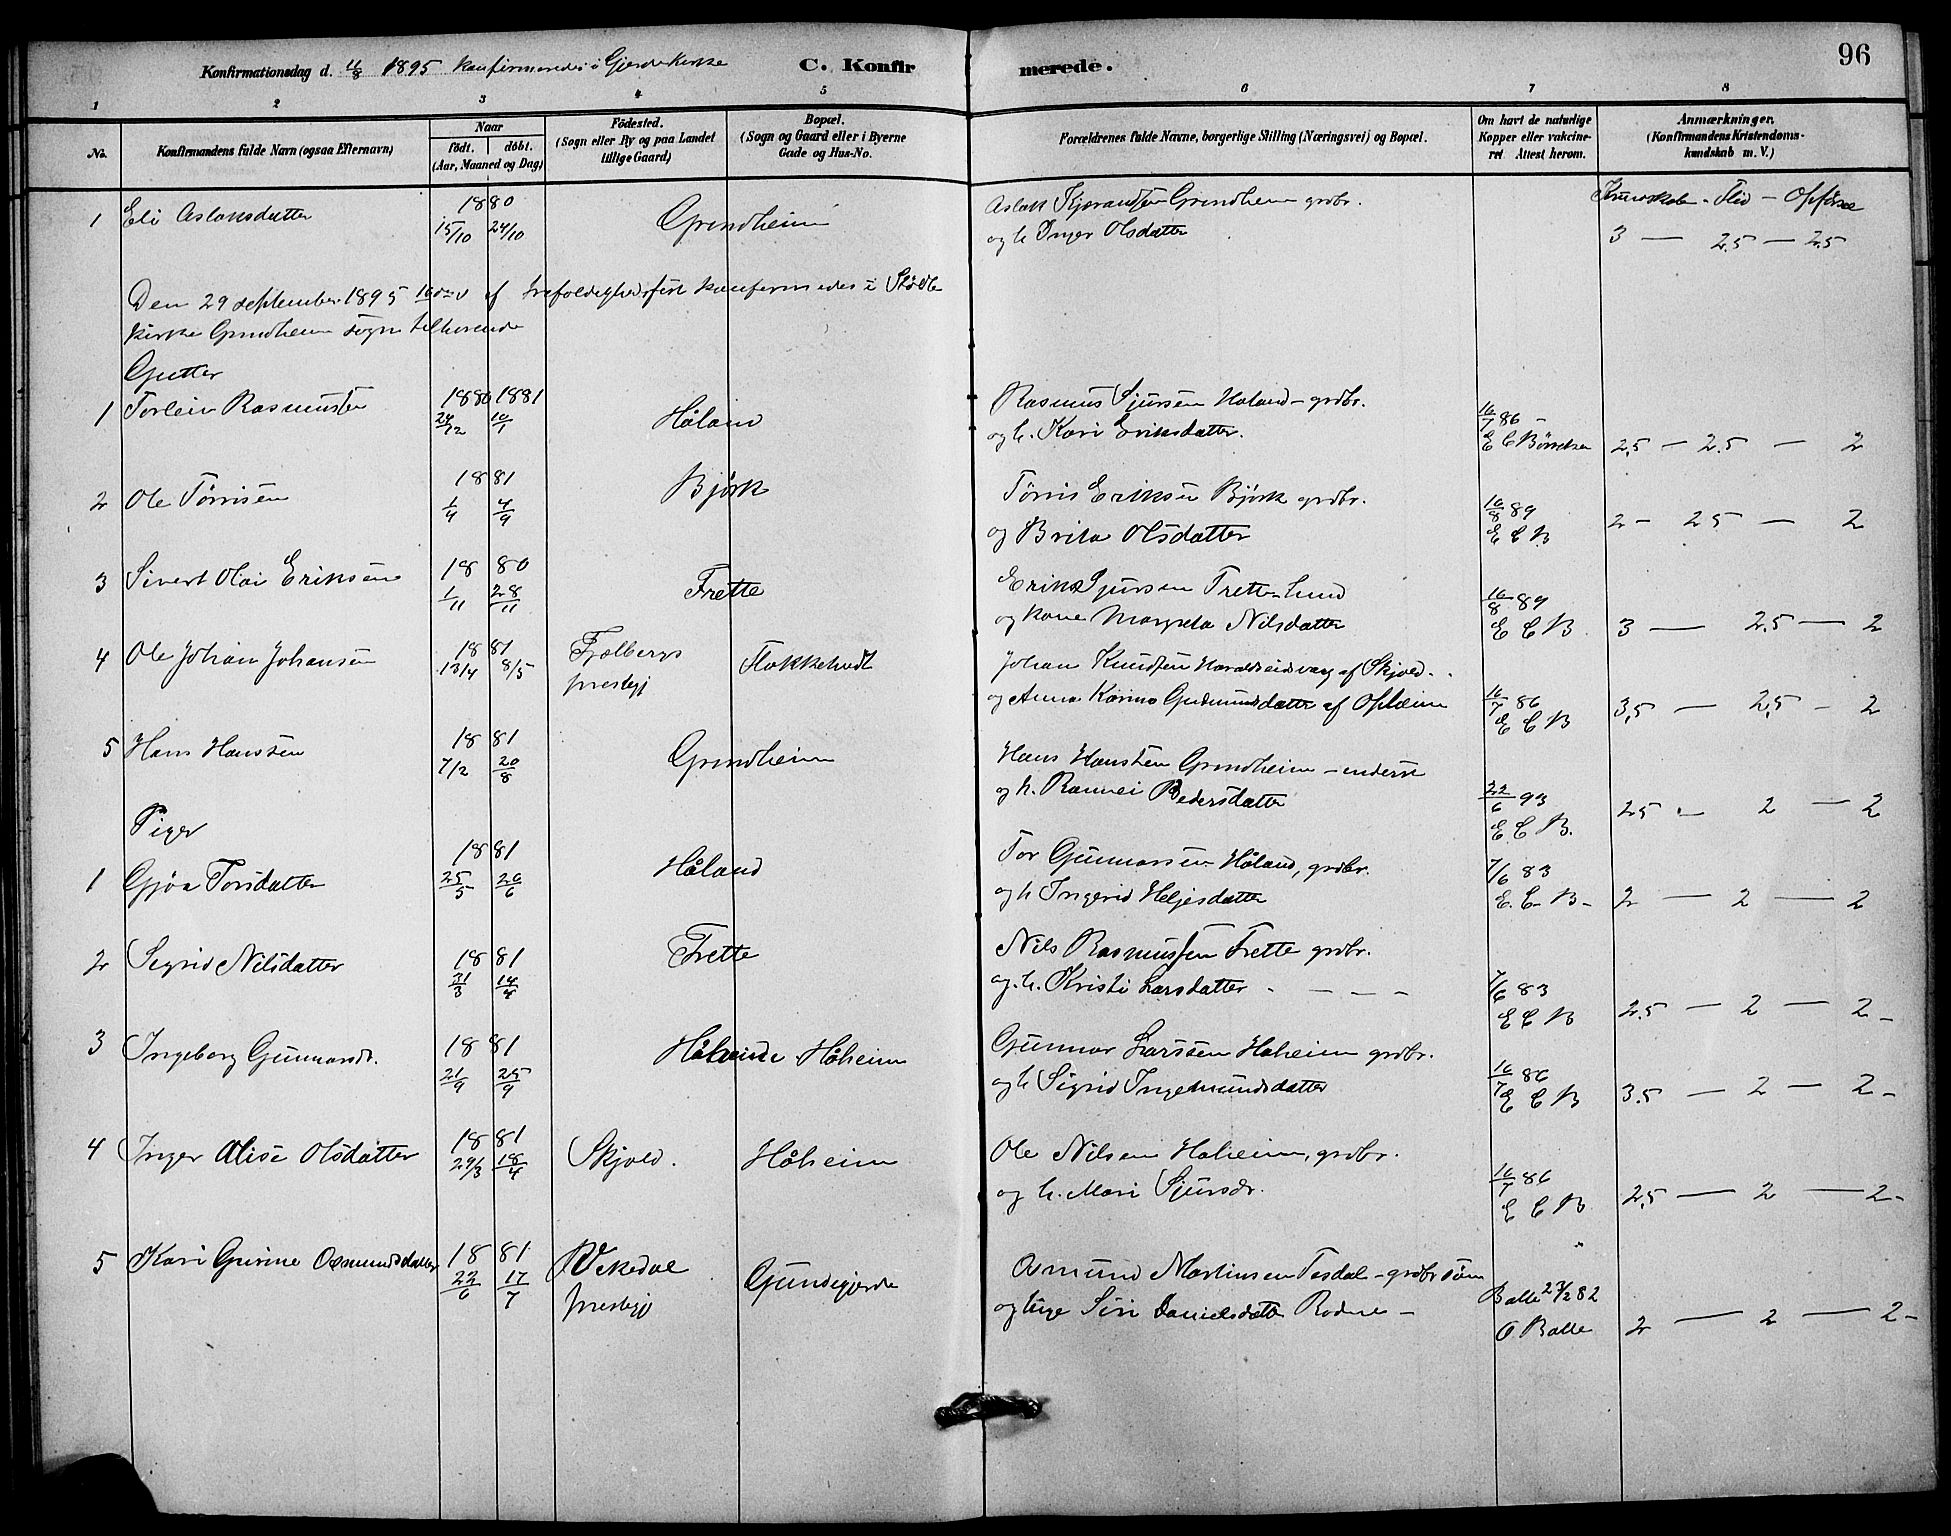 96
Konfirmationsdag d. 11/8 1895 konfirmeredes i Gjerde kirke C. Konfirmerede.
1 2 3 4 5 6 7 8
No. Konfirmandens fulde Navn (ogsaa Efternavn) Naar födt. döbt. (Aar, Maaned og Dag) Födested. (Sogn eller By og paa Landet tillige Gaard) Bopæl. (Sogn og Gaard eller i Byerne Gade og Hus-No. Forældrenes fulde Navne, borgerlige Stilling (Næringsvei) og Bopæl. Om havt de naturlige Kopper eller vakcineret Attest herom. Anmærkninger. (Konfirmandens Kristendomskundskab m. V.)
1 Eli Aslaksdatter 1880 15/10 24/10 Grindheim Aslak Grindheim grdbr. Kundskab - Flid - Opførsel
og h. Inger Olsdatter 3 — 2.5 — 2.5
Den 29 september 1895 16de s af trefoldighedsfest konfirmedes i Skåle
kirke Grindheim sogn tilhørende
Gutter
1 Torleiv Rasmussen 1880 1881 24/12 10/1 Håland Rasmus Sjursen Haland - grdbr.
og h. Kari Eriksdatter. 16/7 86 E C 2,5 — 2.5 — 2
2 Ole Tørrisen 1881 1/4 4/9 Bjørk Tørris Eriksen Bjørk grdbr.
og Brita Olsdatter 16/8 89 E C B 2 — 2 5 — 2
3 Sivert Olai Eriksen 1880 1/11 28/11 Frette Erik Sjursen Frette-lund
og kone Margreta Nilsdatter 16/8 89 E C B 3 — 2.5 — 2
4 Ole Johan Johansen 1881 13/4 8/5 Fjelbergs prestegj Johan Knudsen af Skjold.
og Anna Karina Gudmundsdatter af Ølen 16/7 86 E C B 3,5 — 2,5 — 2
5 Hans Hanssen 1881 7/2 20/8 Grindheim Hans Hanssen Grindheim - inderst
og h. Rannei Pedersdatter 22/6 93 E. C. B. 2 5 — 2 — 2
Piger
1 Gjøa Torsdatter 1881 25/5 26/6 Håland Tor Gunnarsen Håland, grdbr.
og h Ingerid Heljesdatter 7/6 83 E. C. B - 2 — 2 — 2
2 Sigrid Nilsdatter 1881 31/3 14/4 Frette Nils Rasmussen Frette grdbr.
og. h. Kristi Larsdatter - - - - 7/6 83 E C B 2.5 — 2 — 2 -
3 Ingeborg Gunnarsdr. 1881 21/9 25/9 Håheim Gunnar Larssen Haheim grdbr.
og h Sigrid Ingemundsdatter 16/7 86 E C B 3.5 — 2 — 2 -
4 Inger Alise Olsdatter 1881 29/3 18/4 Skjold. Håheim Ole Nilsen Haheim, grdbr.
og h. Mari Sjursdr. 16/7 86 E C B 2,5 — 2 — 2 -
5 Kari Gurine Osmundsdatter 1881 22/6 17/7 Vikedal prestegj Gundegjerde Osmund Martinsen Tesdal - grdbr søn
og pige Siri Danielsdatter Rødne - Balle 82 O Balle 2 — 2 — 2 -